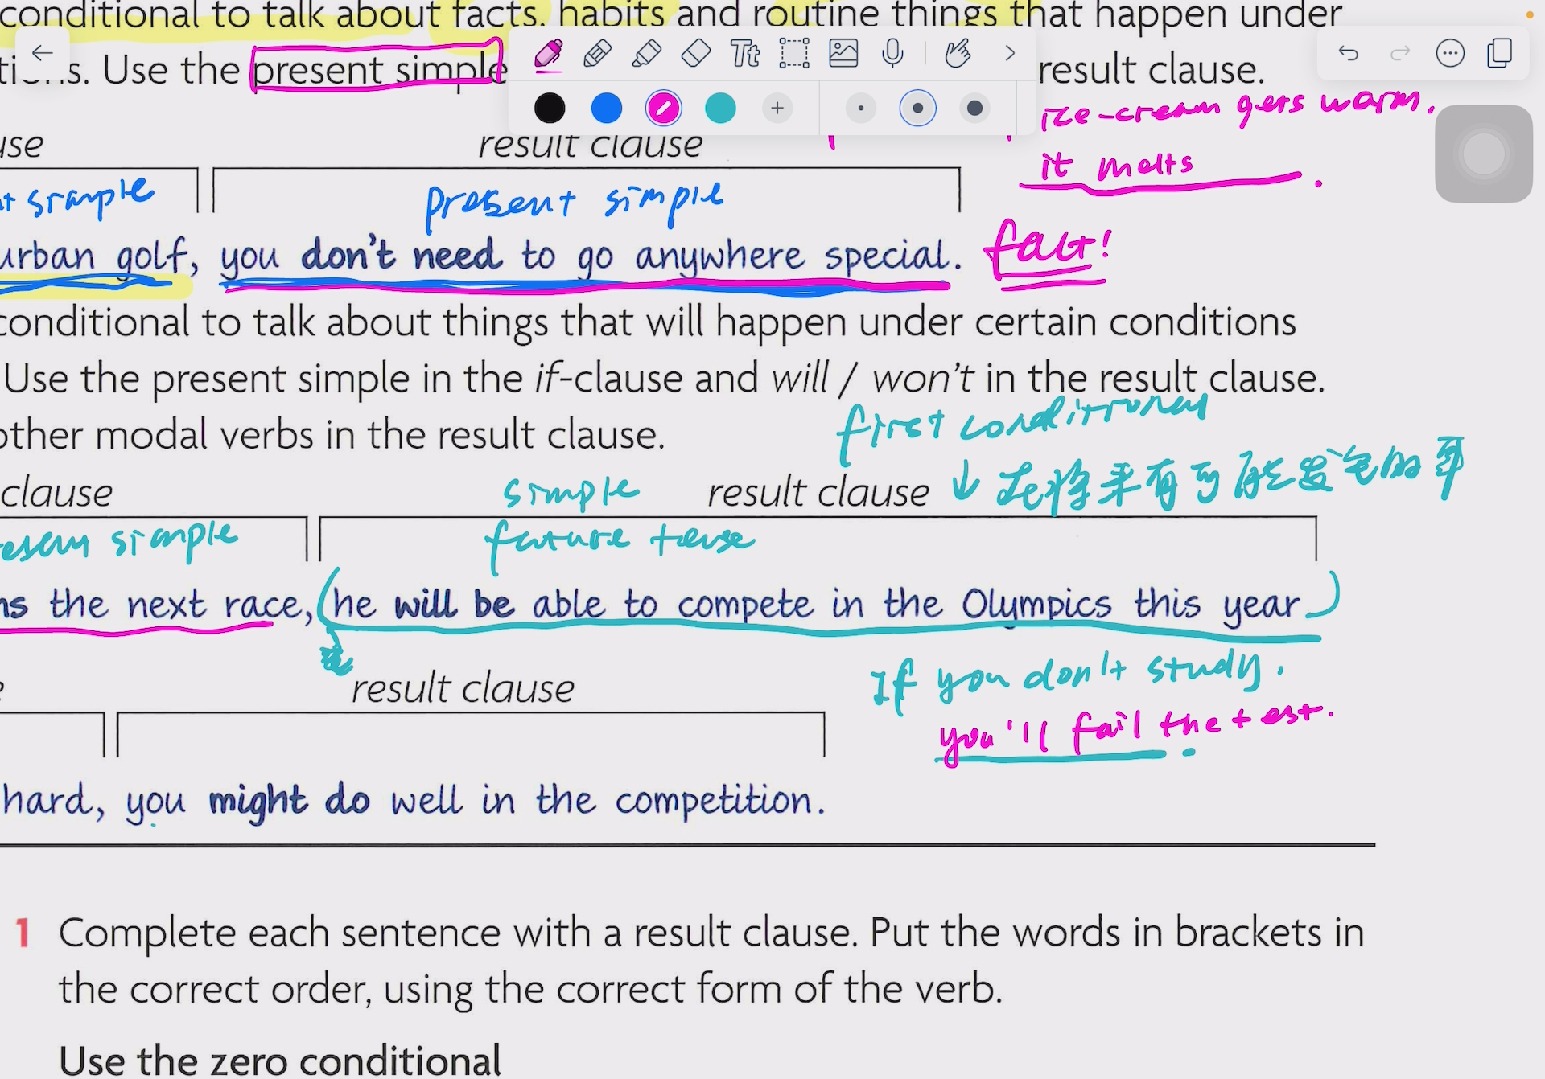 conditional to talk about facts, habits and routine things that happen under
tions. Use the present simple result clause.
Tt
ice-cream gets warm,
it melts.
use result clause
nt simple present simple
urban golf, you don't need to go anywhere special. fact!
conditional to talk about things that will happen under certain conditions
Use the present simple in the if-clause and will / won't in the result clause.
other modal verbs in the result clause.
first conditional
↓ 在将来有可能会发生的事
clause simple result clause
resent simple future tense
ns the next race, (he will be able to compete in the Olympics this year)
If you don't study,
you'll fail the test.
e result clause
hard, you might do well in the competition.
1 Complete each sentence with a result clause. Put the words in brackets in
the correct order, using the correct form of the verb.
Use the zero conditional